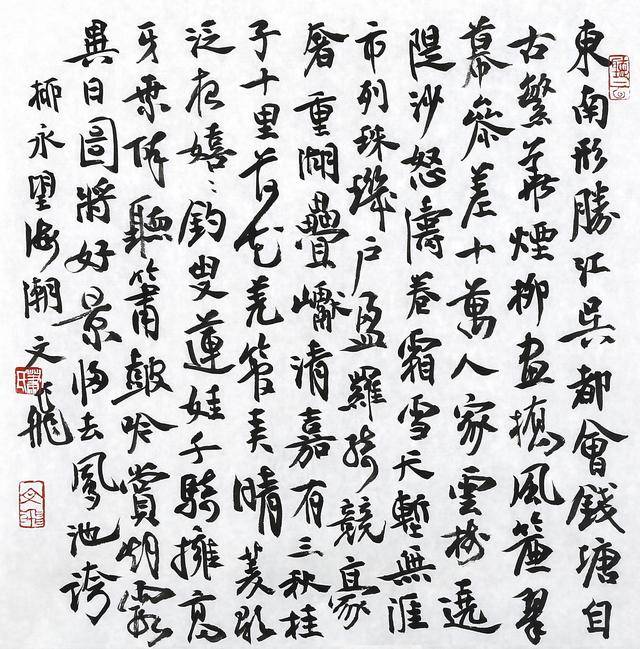 東南形勝江吳都會錢塘自
古繁華煙柳畫橋風簾翠
幕參差十萬人家雲樹遶
隄沙怒濤卷霜雪天塹無涯
市列珠璣户盈羅綺競豪
奢重湖疊巘清嘉有三秋桂
子十里荷花羌管弄晴菱歌
泛夜嬉〻釣叟蓮娃千騎擁高
牙乘醉聽簫鼓吟賞烟霞
異日圖將好景歸去鳳池誇
柳永望海潮 文飛